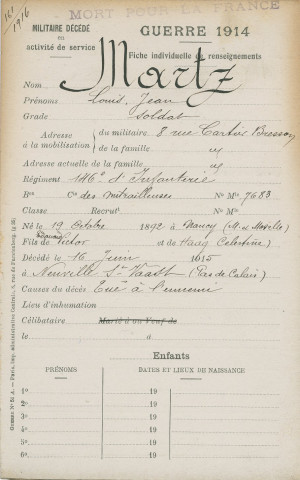 161
1916
MORT POUR LA FRANCE
MILITAIRE DÉCÉDÉ
en
activité de service
GUERRE 1914
Fiche individuelle de renseignements
Nom Martz
Prénoms Louis, Jean
Grade Soldat
Adresse à la mobilisation du militaire 8 rue Cartier Bresson
de la famille id
Adresse actuelle de la famille id
Régiment 146e d'Infanterie
Bon Cie des mitrailleuses No Mle 7683
Classe Recrut No Mle
Né le 19 Octobre 1892 à Nancy (M. et Moselle)
Fils de Victor Edouard et Célestine
Décédé le 16 Juin 1915
à Neuville St Vaast (Pas de Calais)
Causes du décès Tué à l'ennemi
Lieu d'inhumation
Célibataire Marié à ou Veuf de
le à
Enfants
PRÉNOMS DATES ET LIEUX DE NAISSANCE
1o 19
2o 19
3o 19
4o 19
5o 19
6o 19